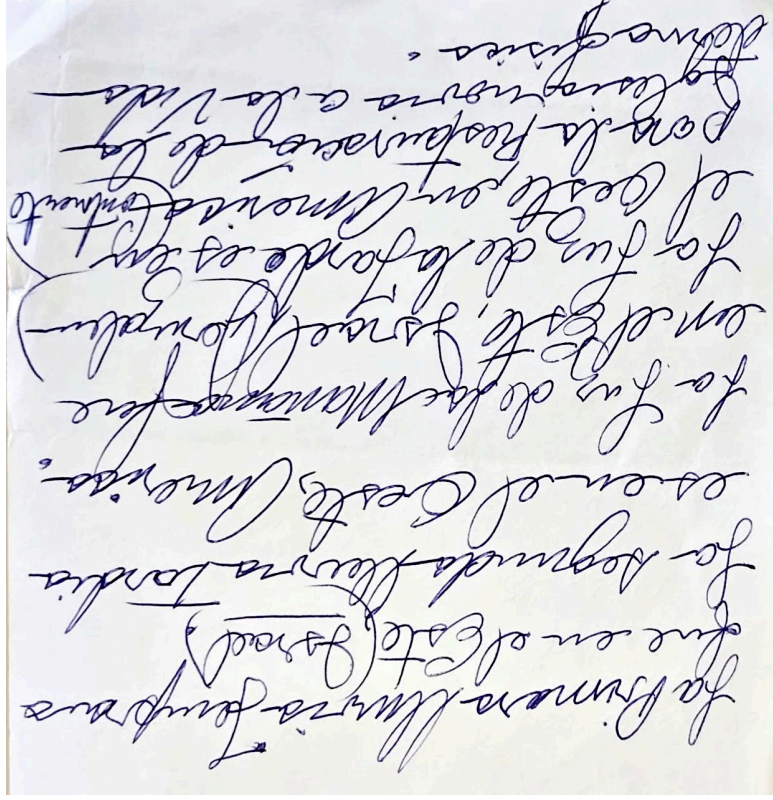 La Primera lluvia Temprana
fue en el Este (Israel).
La segunda lluvia Tardia
es en el Oeste, America.
La Luz de la Mañana fue
en el Este, Israel (Jerusalen)
La Luz de la Tarde es en
el Oeste, en America (Continente)
para la Restauración de la
Iglesia novia a la Vida
eterna fisica.